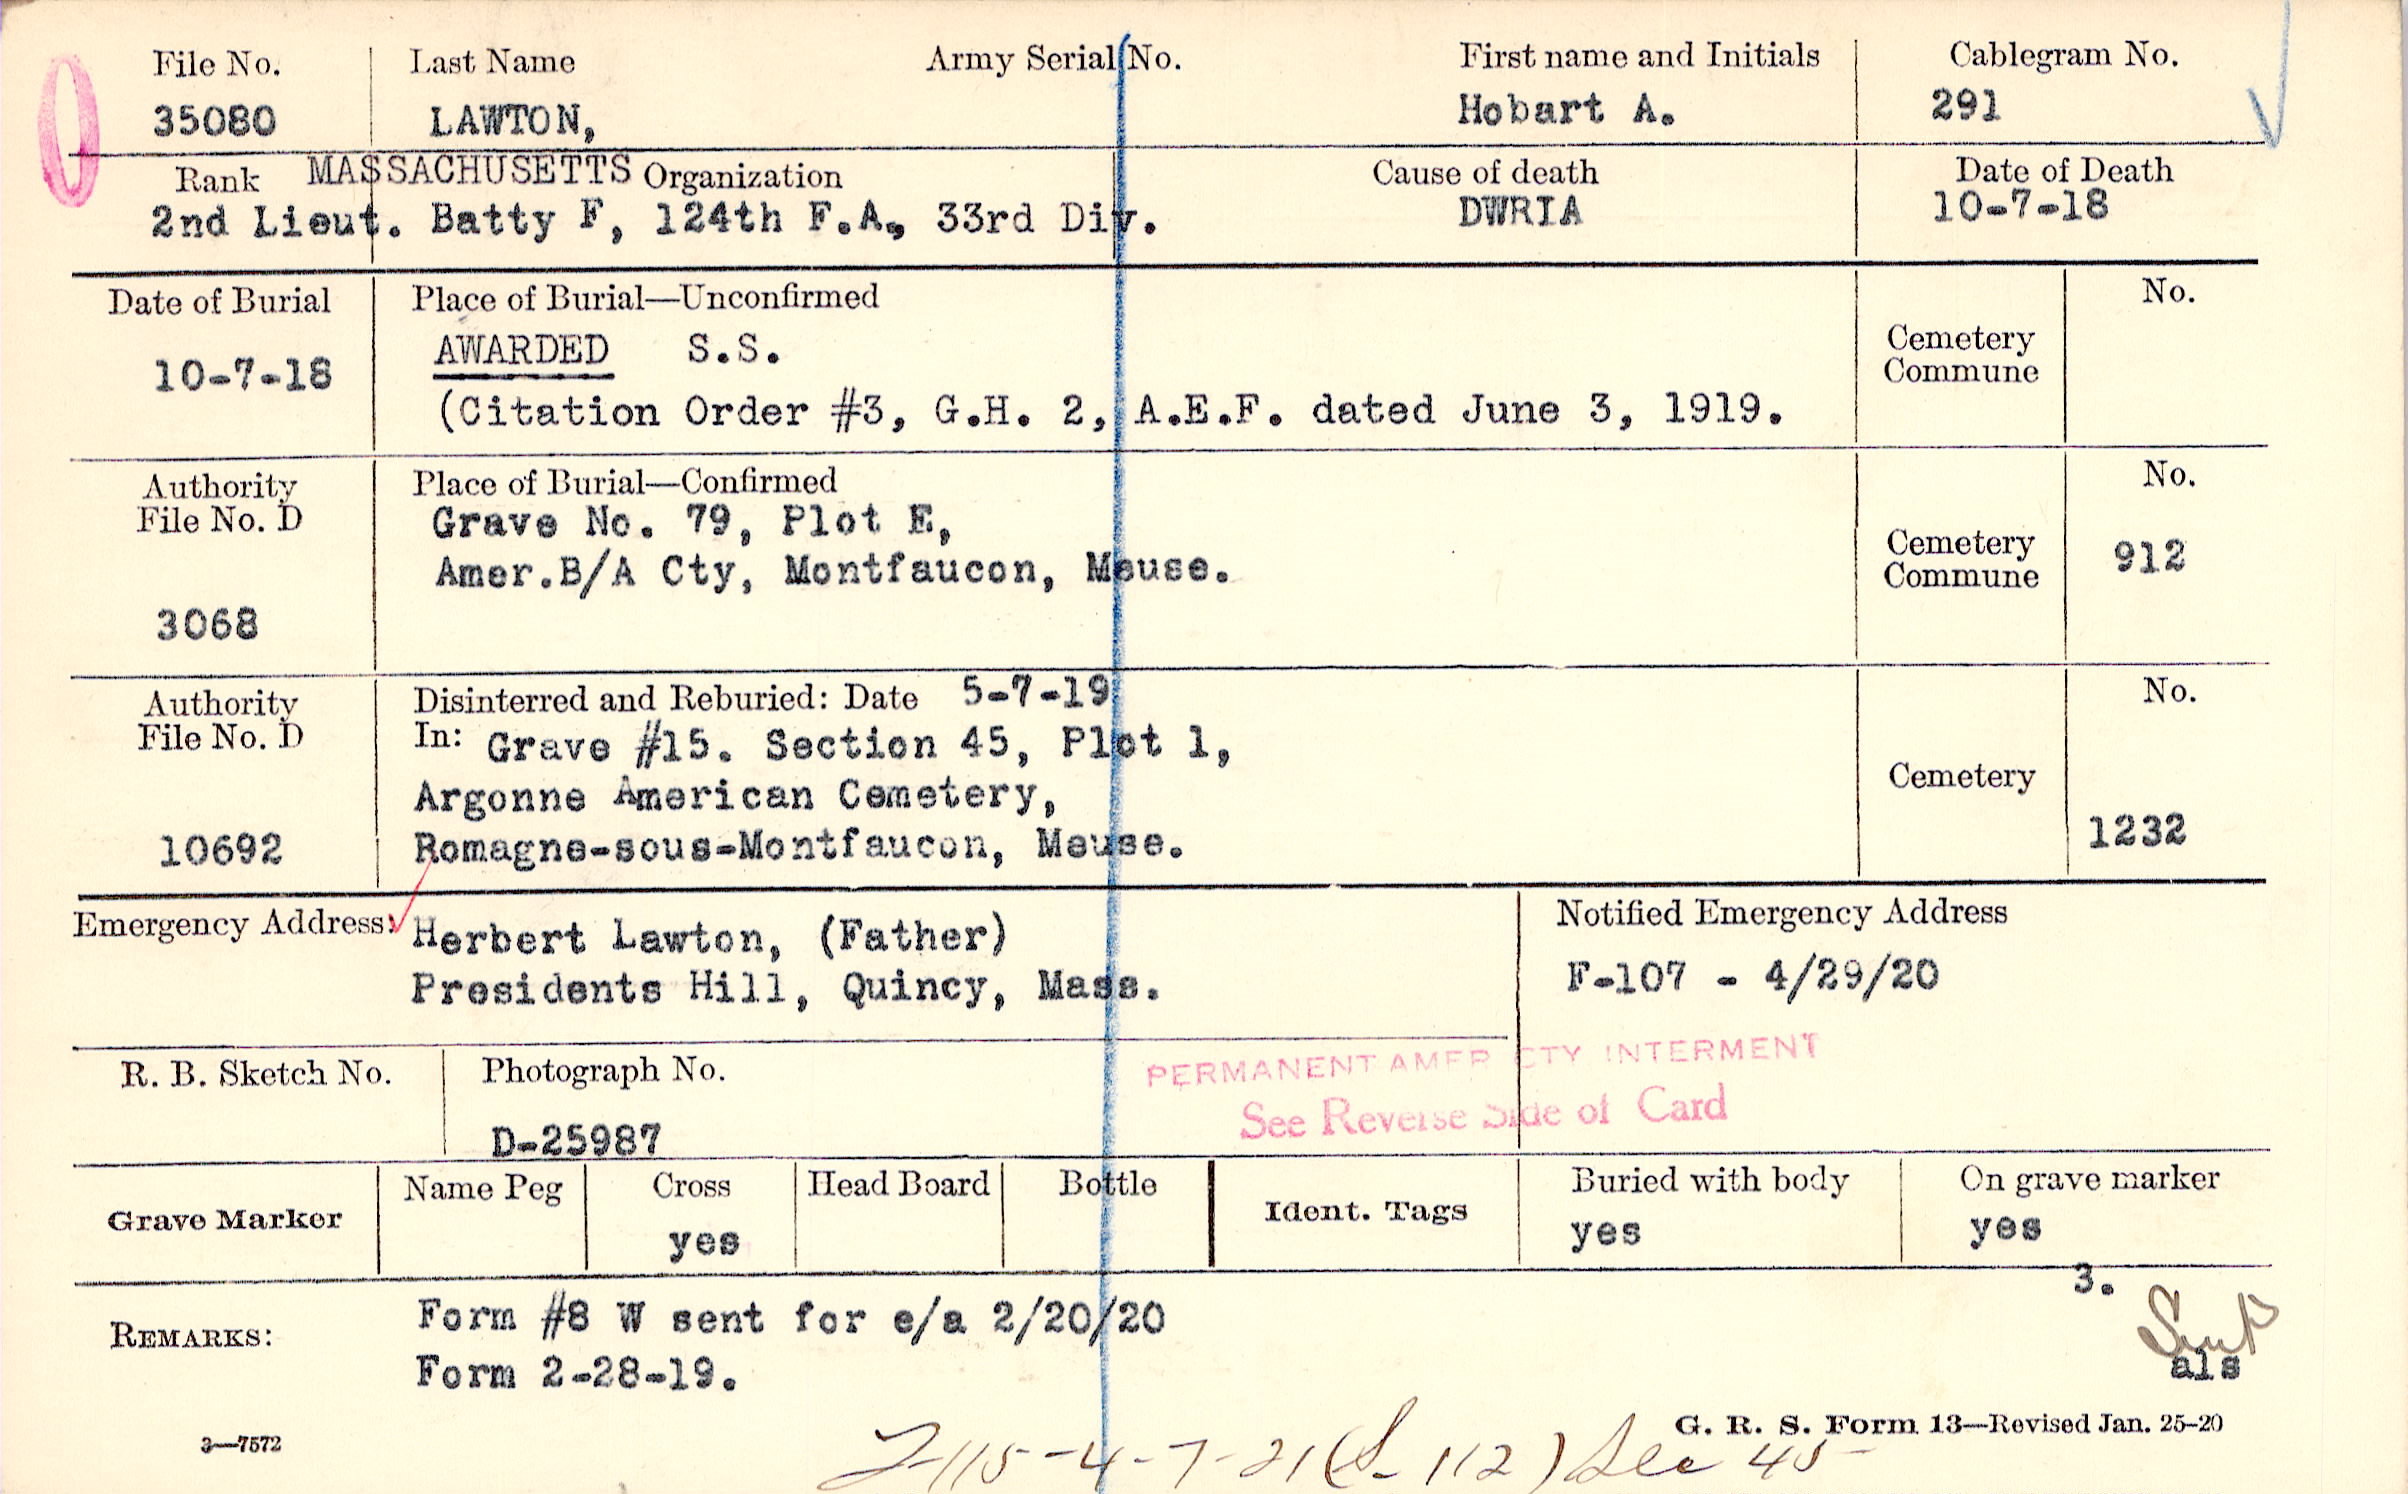 File No. Last Name Army Serial No. First name and Initials Cablegram No.
35080 LAWTON, Hobart A. 291
Rank MASSACHUSETTS Organization Cause of death Date of Death
2nd Lieut. Batty F, 124th F.A, 33rd Div. DWRIA 10-7-18
Date of Burial Place of Burial—Unconfirmed No.
AWARDED S.S. Cemetery Commune
10-7-18
(Citation Order #3, G.H. 2, A.E.F. dated June 3, 1919.
Authority File No. D Place of Burial—Confirmed No.
Grave No. 79, Plot E,
Amer.B/A Cty, Montfaucon, Meuse. Cemetery Commune 912
3068
Authority File No. D Disinterred and Reburied: Date 5-7-19 No.
In: Grave #15. Section 45, Plot 1,
Argonne American Cemetery, Cemetery
10692 Romagne-sous-Montfaucon, Meuse. 1232
Emergency Address: Herbert Lawton, (Father) Notified Emergency Address
Presidents Hill, Quincy, Mass. F-107 - 4/29/20
R. B. Sketch No. Photograph No. PERMANENT AMER CTY INTERMENT
D-25987 See Reverse Side of Card
Grave Marker Name Peg Cross Head Board Bottle Ident. Tags Buried with body On grave marker
yes yes yes
3.
REMARKS: Form #8 W sent for e/a 2/20/20
Form 2-28-19. als
3—7572 G. R. S. Form 13—Revised Jan. 25-20
115-4-7-21 112) Sec 45